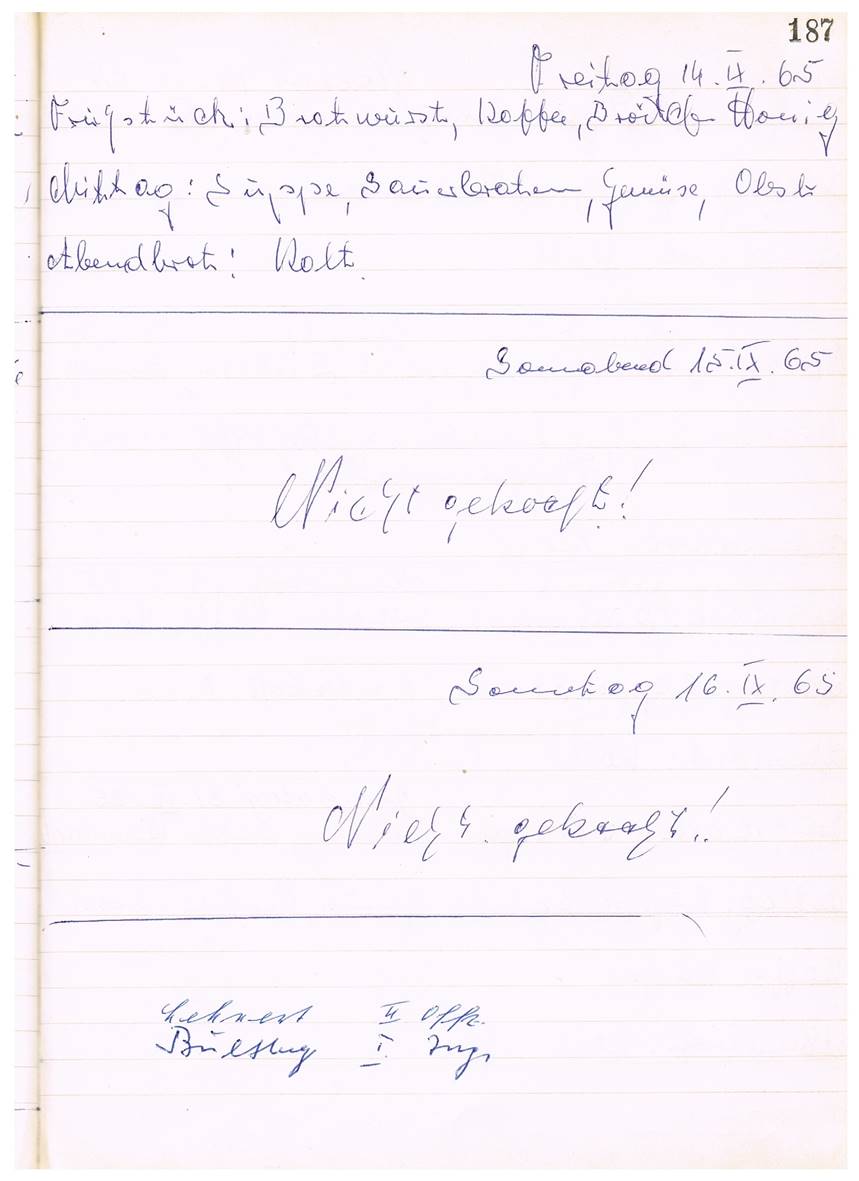 187
Freitag 14. IX. 65
Frühstück: Bratwurst, Kaffee, Brötch Honig
Mittag: Suppe, Sauerbraten, Gemüse, Obst
Abendbrot: Kalt.
Sonnabend 15. IX. 65
Nicht gekocht!
Sonntag 16. IX. 65
Nicht gekocht!
Lehnert II Offz.
I. Ing.